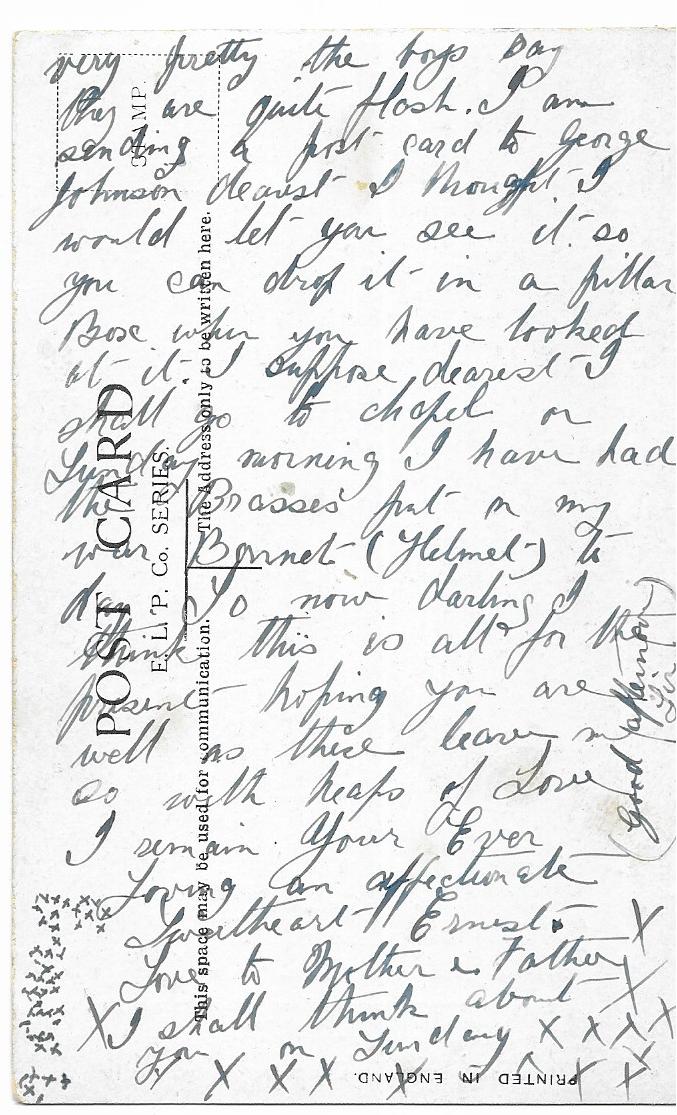 very pretty the boys say
they are quite flash. I am
sending a post card to George
Johnson dearest I thought I
would let you see it so
you can drop it in a pillar
Box when you have looked
at it. I suppose dearest I
shall go to chapel on
Sunday morning I have had
the Brasses put on my
war Bonnet (Helmet) to
day So now darling I
think this is all for the
present hoping you are
well as these leave me
so with heaps of Love
I remain Your Ever
Loving an affectionate
Sweetheart Ernest.
Love to Mother & Father
X I shall think about X
You on Sunday X X X X
X X X X X X X
(Good afternoon)
STAMP.
POST CARD
E. L. P. Co. SERIES.
This space may be used for communication.
The Address only to be written here.
PRINTED IN ENGLAND.